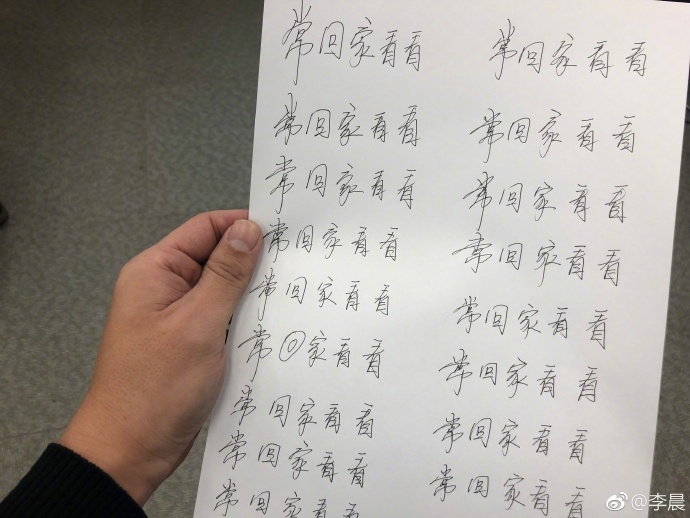 常回家看看 常回家看看
常回家看看 常回家看看
常回家看看 常回家看看
常回家看看 常回家看看
常回家看看 常回家看看
常◎家看看 常回家看看
常回家看看 常回家看看
常回家看看 常回家看看
常回家看看
@李晨